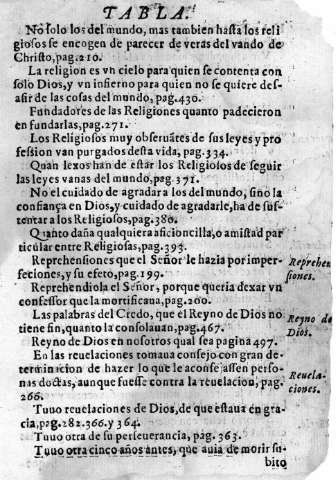 TABLA.
No solo los del mundo, mas tambien hasta los reli
giosos se encogen de parecer de veras del vando de
Christo, pag. 210.
La religion es vn cielo para quien se contenta con
solo Dios, y vn infierno para quien no se quiere des-
asir de las cosas del mundo, pag. 430.
Fundadores de las Religiones quanto padecieron
en fundarlas, pag. 271.
Los Religiosos muy obseruãtes de sus leyes y pro
fession van purgados desta vida, pag. 334.
Quan lexos han de estar los Religiosos de seguir
las leyes vanas del mundo, pag. 371.
No el cuidado de agradar a los del mundo, sino la
confiança en Dios, y cuidado de agradarle, ha de sus-
tentar a los Religiosos, pag. 380.
Quanto daña qualquiera aficioncilla, o amistad par
ticular entre Religiosas, pag. 393.
Reprehensiones que el Señor le hazia por imper-
feciones, y su efeto, pag. 199.
Reprehen
siones.
Reprehendiola el Señor, porque queria dexar vn
confessor que la mortificaua, pag. 200.
Las palabras del Credo, que el Reyno de Dios no
tiene fin, quanto la consolauan, pag. 467.
Reyno de
Dios.
Reyno de Dios en nosotros qual sea pagina 497.
En las reuelaciones tomaua consejo con gran de-
terminacion de hazer lo que le aconsejassen perso-
nas doctas, aunque fuesse contra la reuelacion, pag.
266.
Reuela-
ciones.
Tuuo reuelaciones de Dios, de que estaua en gra-
cia, pag. 282. 366. y 364.
Tuuo otra de su perseuerancia, pag. 363.
Tuuo otra cinco años antes, que auia de morir su
bito